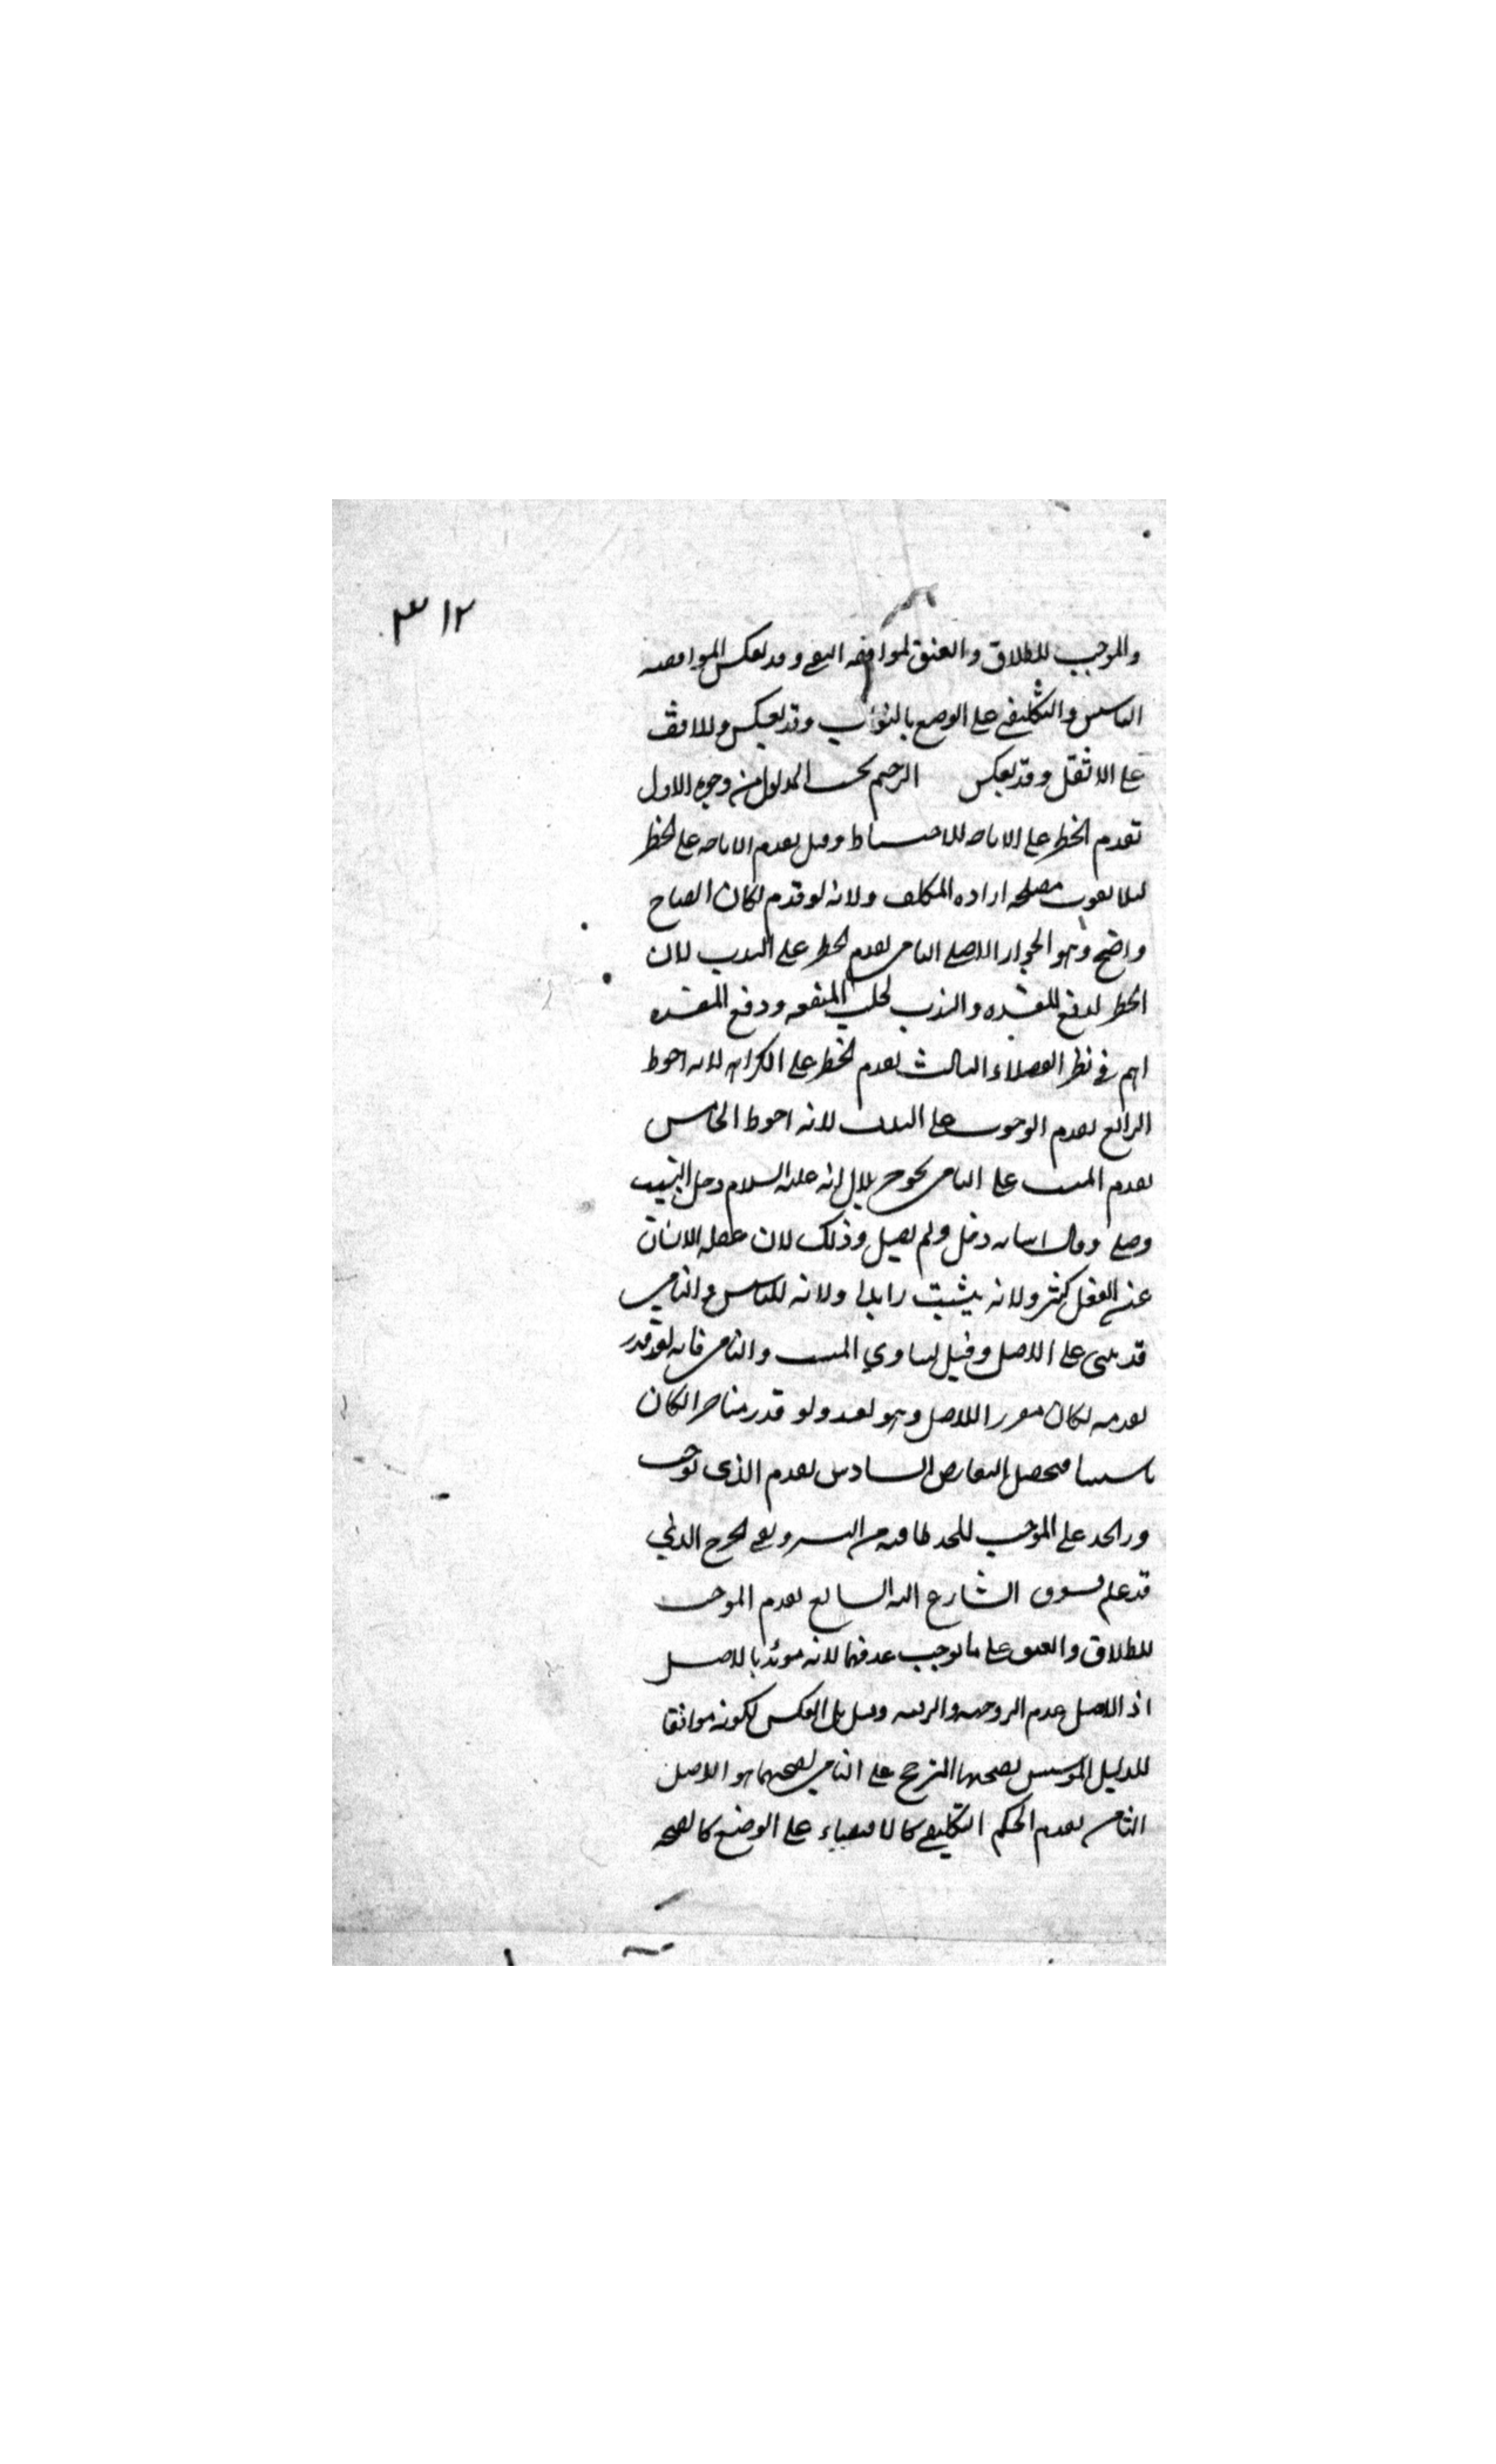 ٣١٢
والموجب للطلاق والعتق لموافقه النفى وقد يعكس لموافقه
التاسيس والتكليفي على الوضعي بالثواب وقد يعكس وللاخف
على الاثقل وقد يعكس الترجيح بحسب المدلول من وجوه الاول
تقدم الحظر على الاباحه للاحتياط وقيل يقدم الاباحه على الحظر
ليلا يفوت مصلحه اراده المكلف ولانه لو قدم لكان ايضاح
واضح وهو الجواز الاصلي الثاني يقدم الحظر على الندب لان
الحظر لدفع المفسده والندب لجلب المنفعه ودفع المفسده
اهم في نظر العقلاء الثالث يقدم الحظر على الكراهه لانه احوط
الرابع يقدم الوجوب على الندب لانه احوط الخامس
يقدم المثبت على النافي كخبر بلال انه عليه السلام دخل البيت
وصلى وقال اسامه دخل ولم يصل وذلك لان غفله الانسان
عن الفعل كثير ولانه يثبت زايدا ولانه للتاسيس والنافي
قد يبنى على الاصل وقيل يتساوي المثبت والنافي فانه لو قدر
تقدمه لكان مقررا للاصل وهو بعيد ولو قدر متاخرا لكان
تاسيسا فيحصل التعارض السادس يقدم الذى يوجب
درا الحد على الموجب للحد لما فيه من اليسر ونفى الحرج الذي
قد علم تشوق الشارع اليه السابع يقدم الموجب
للطلاق والعتق على ما يوجب عدمهما لانه مويد بالاصل
اذ الاصل عدم الزوجيه والرقيه وقيل بل العكس لكونه موافقا
للدليل الموسس لصحتها المترجح على النافي لصحتهما هو الاصل
الثامن يقدم الحكم التكليفي كالاقتضاء على الوضعي كالصحه